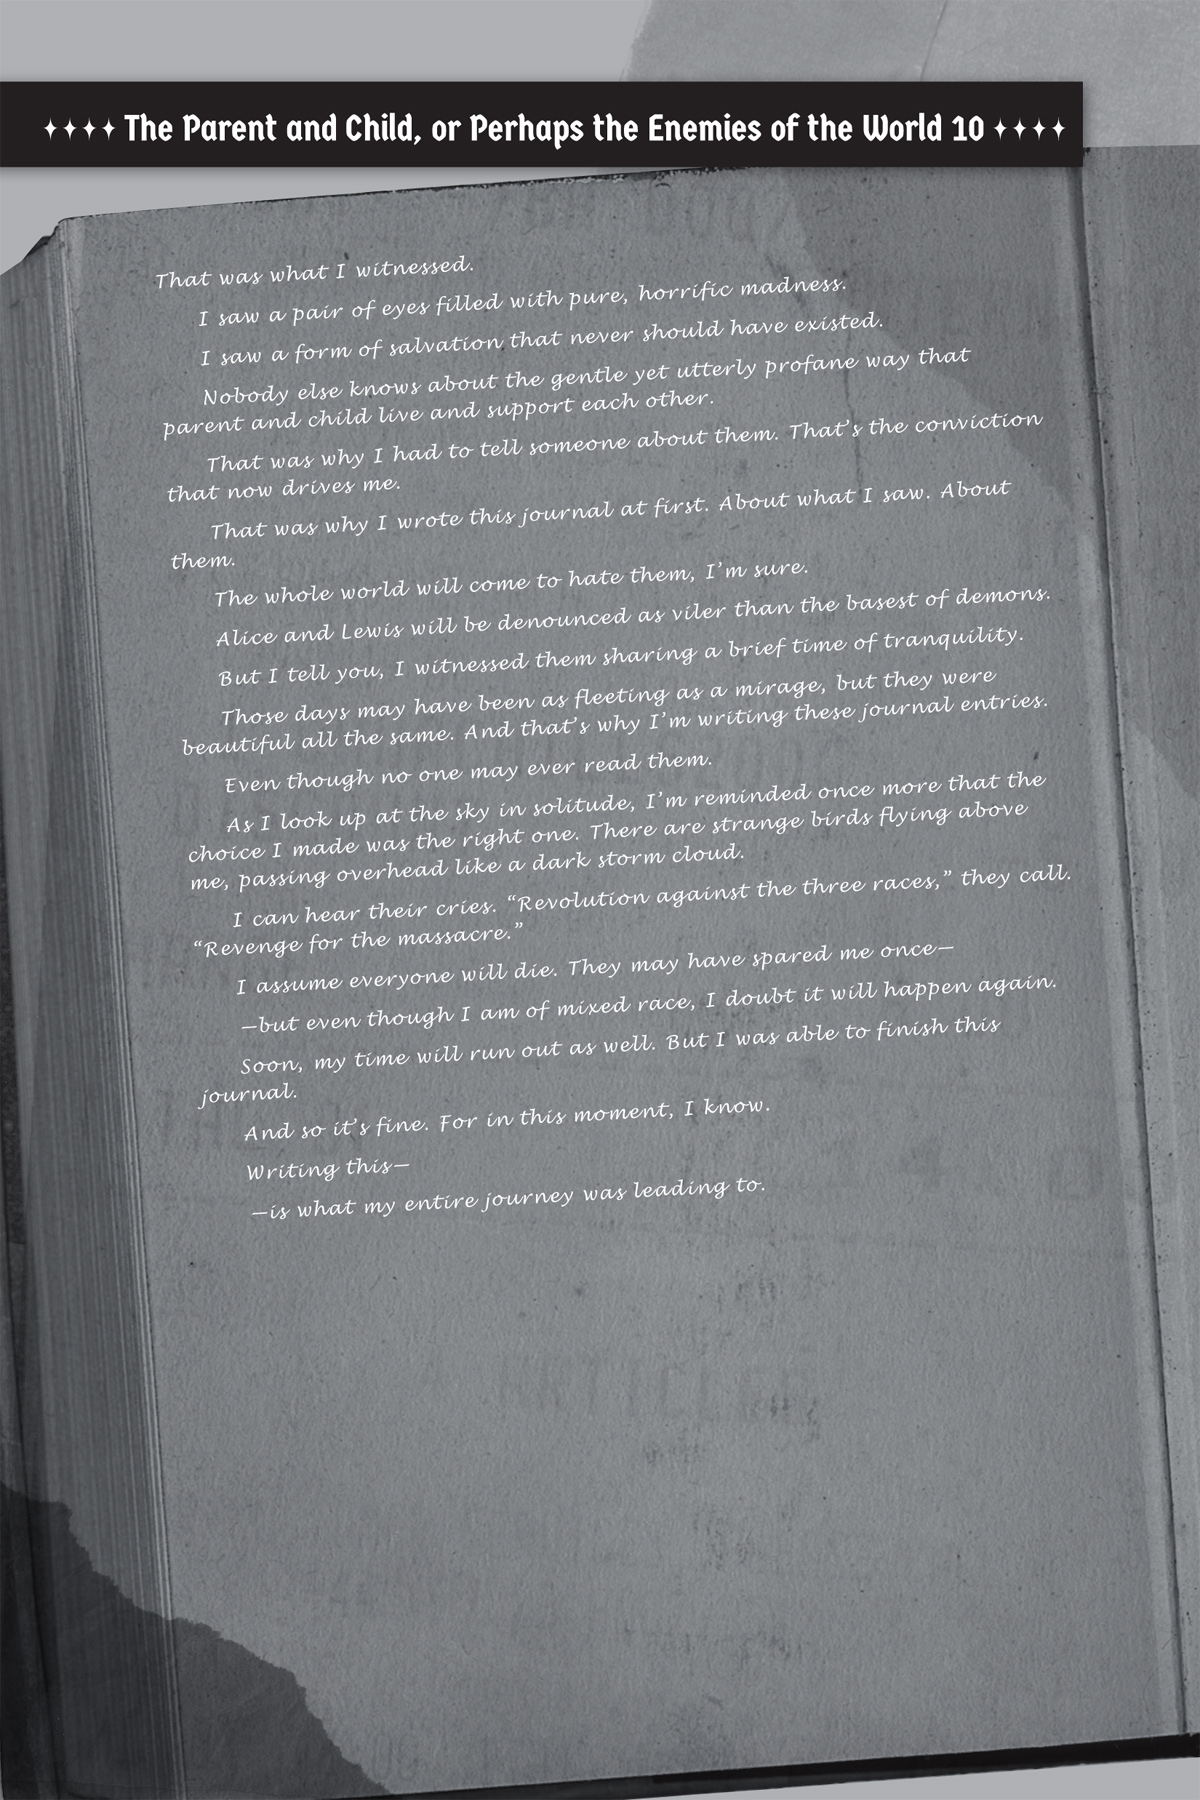 The Parent and Child, or Perhaps the Enemies of the World 10
That was what I witnessed.
I saw a pair of eyes filled with pure, horrific madness.
I saw a form of salvation that never should have existed.
Nobody else knows about the gentle yet utterly profane way that
parent and child live and support each other.
That was why I had to tell someone about them. That's the conviction
that now drives me.
That was why I wrote this journal at first. About what I saw. About
them.
The whole world will come to hate them, I'm sure.
Alice and Lewis will be denounced as viler than the basest of demons.
But I tell you, I witnessed them sharing a brief time of tranquility.
Those days may have been as fleeting as a mirage, but they were
beautiful all the same. And that's why I'm writing these journal entries.
Even though no one may ever read them.
As I look up at the sky in solitude, I'm reminded once more that the
choice I made was the right one. There are strange birds flying above
me, passing overhead like a dark storm cloud.
I can hear their cries. “Revolution against the three races,” they call.
“Revenge for the massacre.”
I assume everyone will die. They may have spared me once—
—but even though I am of mixed race, I doubt it will happen again.
Soon, my time will run out as well. But I was able to finish this
journal.
And so it's fine. For in this moment, I know.
Writing this—
—is what my entire journey was leading to.